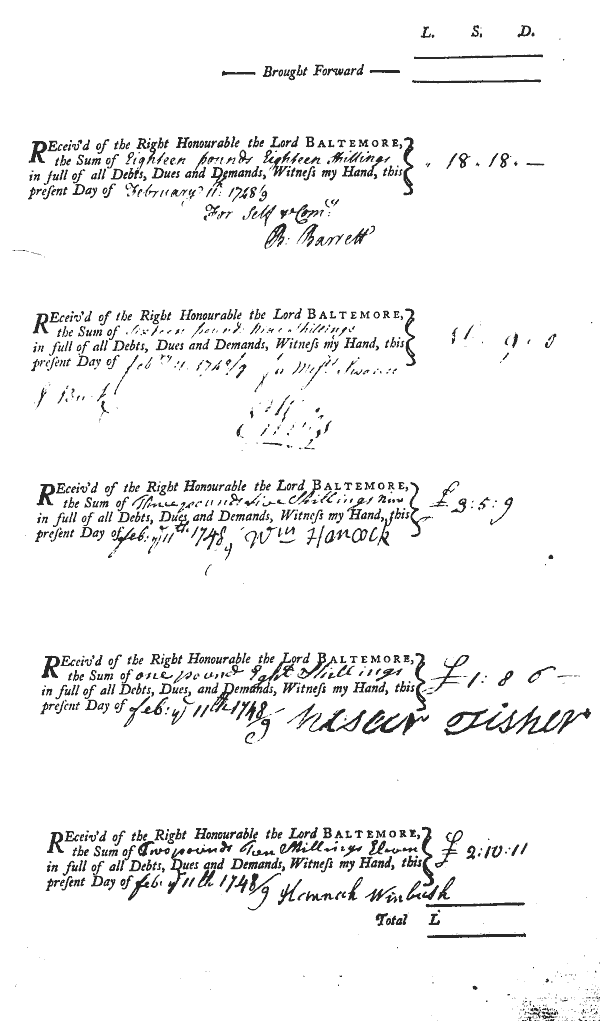 L. S. D.
Brought Forward
REceiv'd of the Right Honourable the Lord BALTEMORE,
the Sum of Eighteen pounds Eighteen Shillings
in full of all Debts, Dues and Demands, Witneſs my Hand, this
preſent Day of February 11: 1748/9
18 . 18 . —
For Self & Comᵖ
B: Barrett
REceiv'd of the Right Honourable the Lord BALTEMORE,
the Sum of Sixteen pounds Nine Shillings
in full of all Debts, Dues and Demands, Witneſs my Hand, this
preſent Day of feb 11 1748/9
9 . 0
REceiv'd of the Right Honourable the Lord BALTEMORE,
the Sum of Three pounds five Shillings nine
in full of all Debts, Dues and Demands, Witneſs my Hand, this
preſent Day of feb: yᵉ 11th 1748/9 Wm Hancock
£ 3 : 5 : 9
REceiv'd of the Right Honourable the Lord BALTEMORE,
the Sum of one pound Eght Shillings
in full of all Debts, Dues, and Demands, Witneſs my Hand, this
preſent Day of feb: yᵉ 11th 1748/9 Fisher
£ 1 : 8 0 —
REceiv'd of the Right Honourable the Lord BALTEMORE,
the Sum of Two pounds Ten Shillings Eleven
in full of all Debts, Dues and Demands, Witneſs my Hand, this
preſent Day of feb: yᵉ 11th 1748/9 Hannah Winbush
£ 2 : 10 : 11
Total L